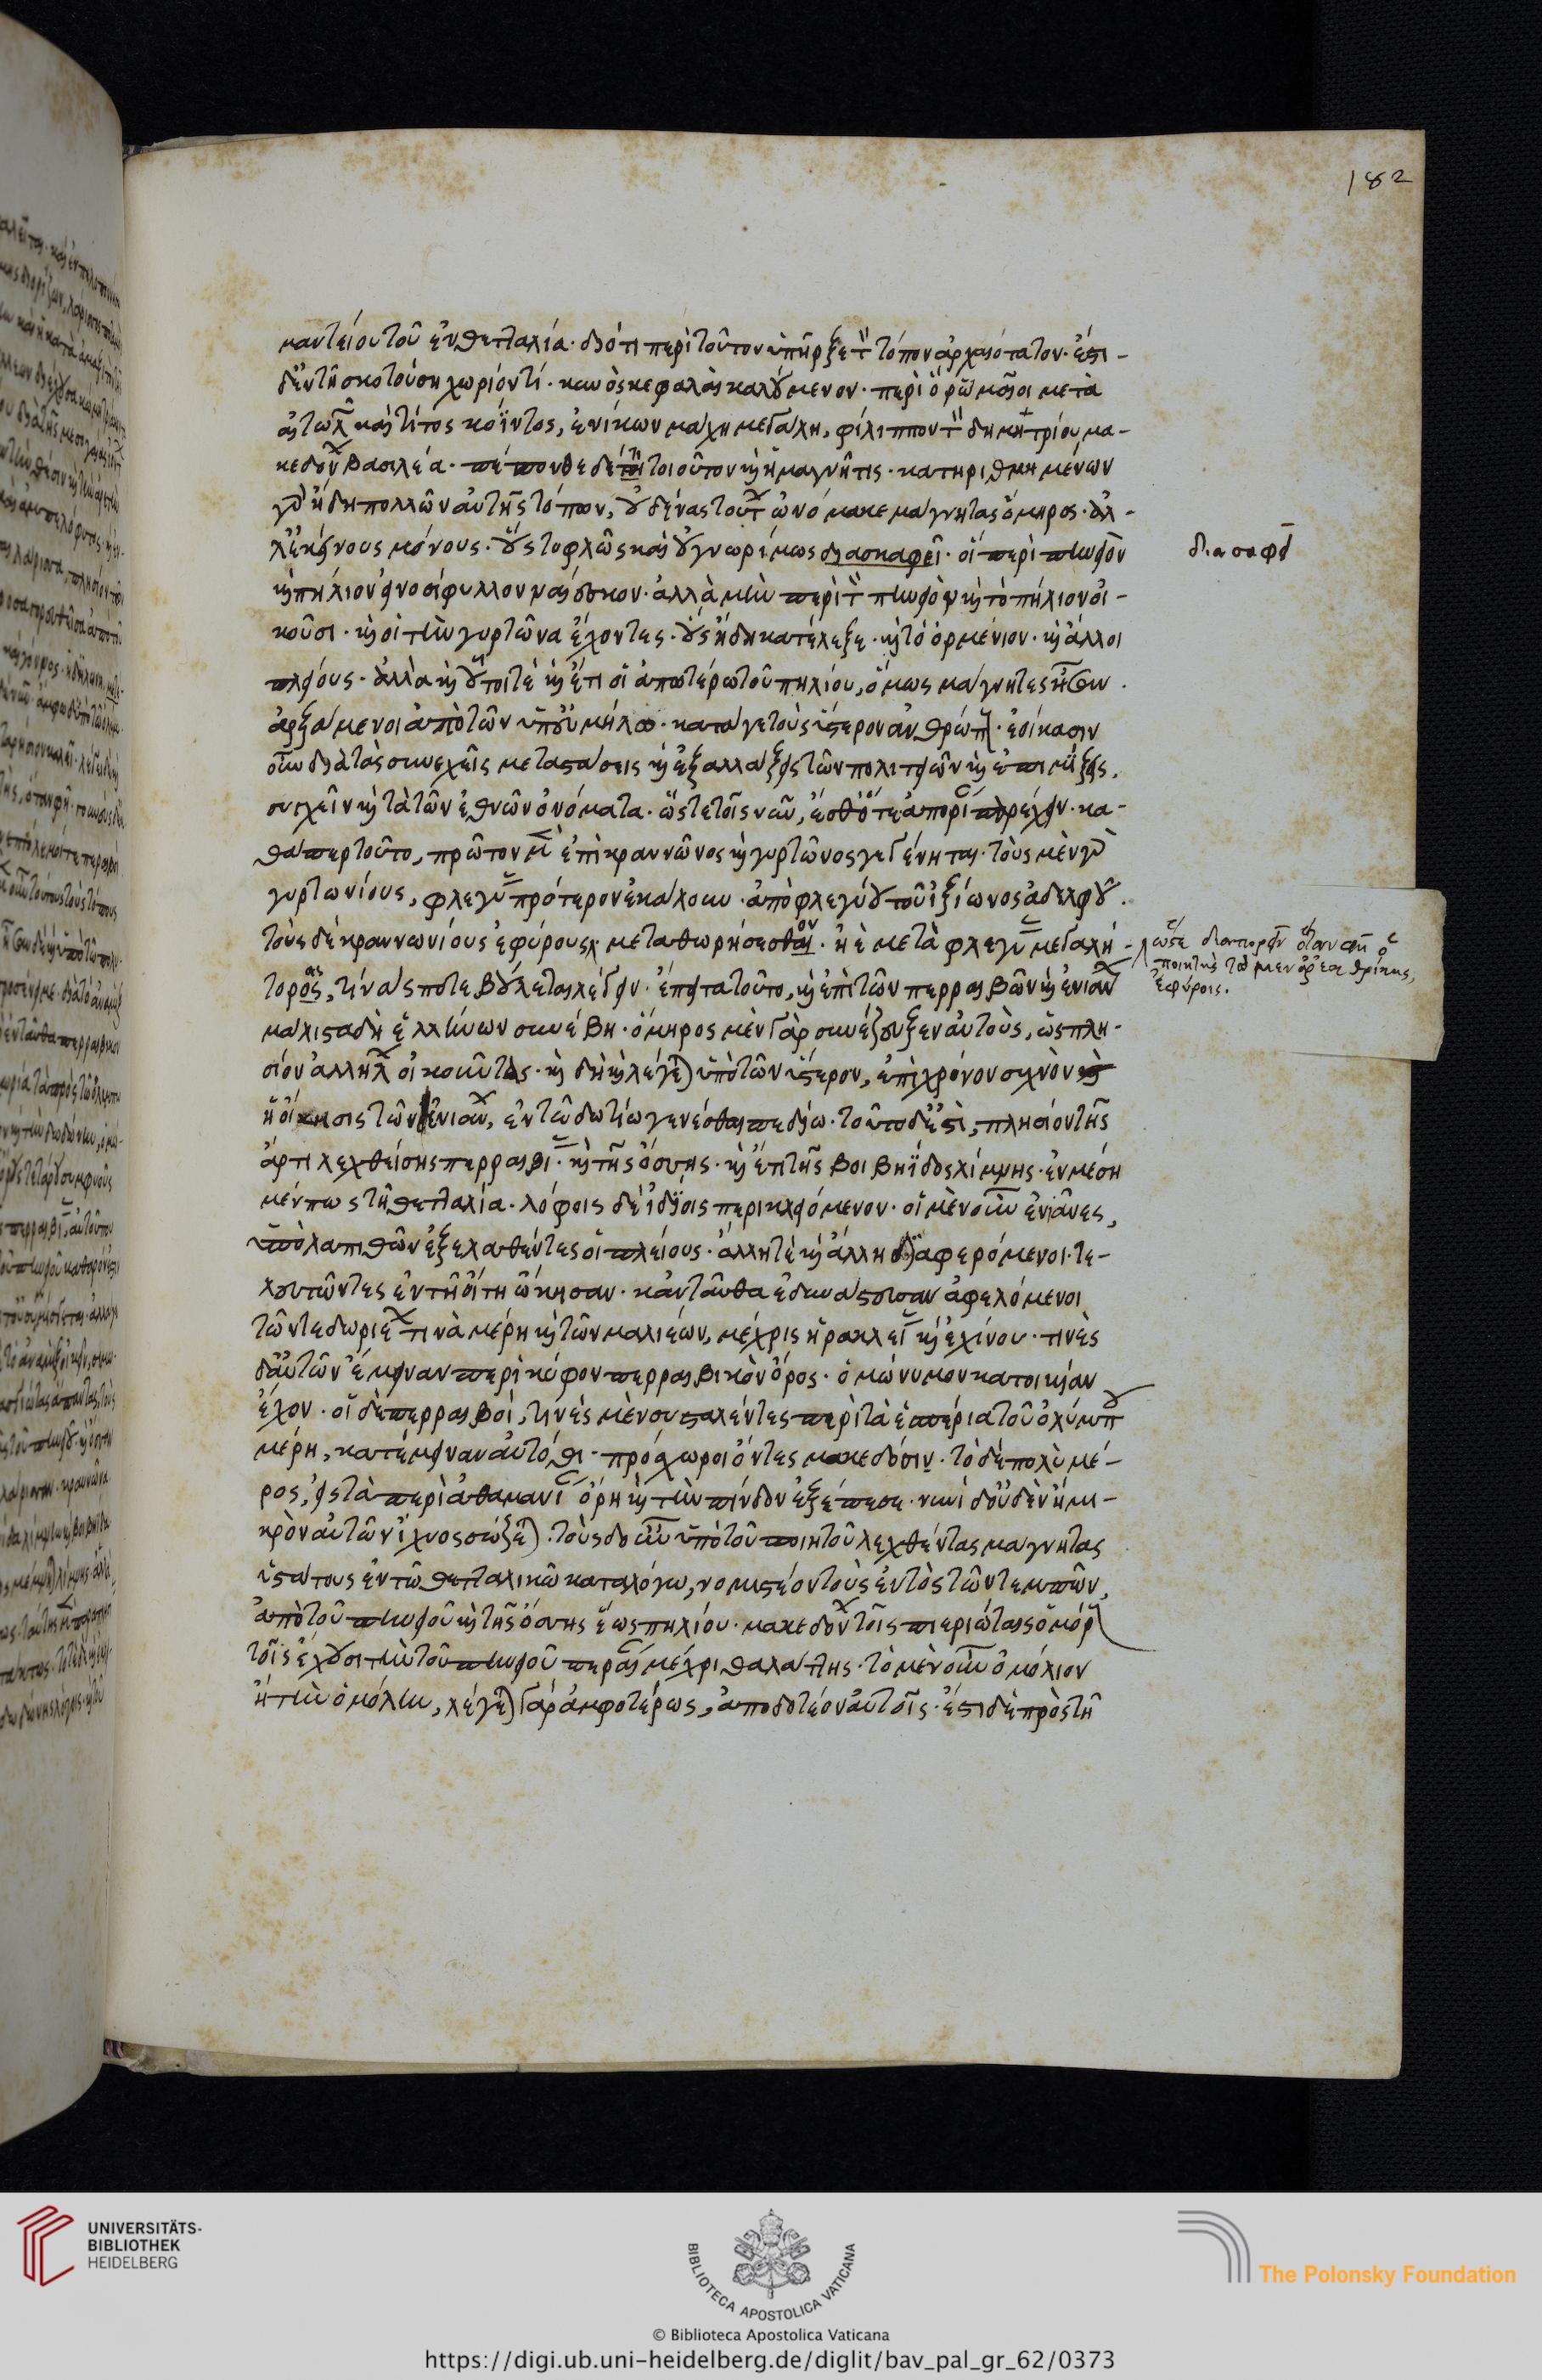 182
μαντείου τοῦ ἐν θετταλία· διότι περὶ τοῦτον ὑπῆρξε τὸν τόπον ἀρχαιότατον· ἔστι
δ' ἐν τῆ σκοτούση χωρίόν τί· κυνὸς κεφαλαὶ καλούμενον· περὶ ὃ ῥωμαῖοι μετὰ
αἰτωλῶν καὶ τίτος κοΐντος, ἐνίκων μάχη μεγάλη, φίλιππον τὸν δημητρίου μα-
κεδόνων βασιλέα· πέπονθε δέ τι τοιοῦτον καὶ ἡ μαγνῆτις· κατηριθμημένων
γὰρ ἤδη πολλῶν αὐτῆς τόπων, οὐδένας τούτων ὠνόμακε μάγνητας ὅμηρος· ἀλ-
λ' ἐκείνους μόνους· οὓς τυφλῶς καὶ οὐ γνωρίμως διασκαφεῖ· οἳ περὶ πηνειὸν
διασαφεῖ
καὶ πήλιον εἰνοσίφυλλον ναίεσκον· ἀλλὰ μὴν περὶ τὸν πηνειὸν καὶ τὸ πήλιον οἰ-
κοῦσι· καὶ οἱ τὴν γυρτῶνα ἔχοντες· οὓς ἤδη κατέλεξε· καὶ τὸ ὀρμένιον· καὶ ἄλλοι
πλείους· ἀλλὰ καὶ οὗτοί τε καὶ ἔτι οἱ ἀπωτέρω τοῦ πηλίου, ὅμως μάγνητες ἦσαν.
ἀρξάμενοι ἀπὸ τῶν ὑπ' εὐμήλω· κατά γε τοὺς ὕστερον ἀνθρώπους· ἐοίκασιν
οὖν διὰ τὰς συνεχεῖς μεταστάσεις καὶ ἐξαλλάξεις τῶν πολιτειῶν καὶ ἐπιμίξεις,
συγχεῖν καὶ τὰ τῶν ἐθνῶν ὀνόματα· ὥστε τοῖς νῦν, ἔσθ' ὅτε ἀπορίαν παρέχειν· κα-
θάπερ τοῦτο, πρῶτον μὲν ἐπὶ κραννῶνος καὶ γυρτῶνος γεγένηται· τοὺς μὲν γὰρ
γυρτωνίους, φλεγύας πρότερον ἐκάλουν· ἀπὸ φλεγύου τοῦ ἰξίωνος ἀδελφοῦ.
τοὺς δὲ κραννωνίους ἐφύρους· μεταθωρήσεσθαι· ἠὲ μετὰ φλεγύας μεγαλή-
ὥστε διαπορεῖν ὅταν φῆ ὁ
ποιητὴς τὼ μὲν ἄρ' ἐκ θρήκης,
ἐφύροις.
τορος, τίνάς ποτε βούλεται λέγειν· ἔπειτα τοῦτο, καὶ ἐπὶ τῶν περραιβῶν καὶ ἐνιάνων
μάλιστα δὴ ἑλλήνων συνέβη· ὅμηρος μὲν γὰρ συνέζευξεν αὐτοὺς, ὡς πλη-
σίον ἀλλήλων οἰκοῦντας· καὶ δὴ καὶ λέγεται ὑπὸ τῶν ὕστερον, ἐπὶ χρόνον συχνὸν
ἡ οἴκησις τῶν ἐνιάνων, ἐν τῶ δωτίω γενέσθαι πεδίω· τοῦτο δ' ἐστὶ, πλησίον τῆς
ἄρτι λεχθείσης περραιβίας· καὶ τῆς ὄσσης· καὶ ἔτι τῆς βοιβηΐδος λίμνης· ἐν μέση
μέν πως τῆ θετταλία· λόφοις δὲ ἰδίοις περικλειόμενον· οἱ μὲν οὖν ἐνιᾶνες,
ὑπὸ λαπιθῶν ἐξελαθέντες οἱ πλείους· ἄλλη τὲ καὶ ἄλλη διαφερόμενοι· τε-
λευτῶντες ἐν τῆ οἴτη ὤκησαν· κἀνταῦθα ἐδυνάστευσαν ἀφελόμενοι
τῶν τε δωριέων τινὰ μέρη καὶ τῶν μαλιέων, μέχρις ἡρακλείας καὶ ἐχίνου· τινὲς
δ' αὐτῶν ἔμειναν περὶ κύφον περραιβικὸν ὄρος· ὁμώνυμον κατοικίαν
ἔχον· οἱ δὲ περραιβοὶ, τινὲς μὲν συσταλέντες περὶ τὰ ἑσπέρια τοῦ ὀλύμπου
μέρη, κατέμειναν αὐτόθι· πρόσχωροι ὄντες μακεδόσιν· τὸ δὲ πολὺ μέ-
ρος, εἰς τὰ περὶ ἀθαμανίαν ὄρη καὶ τὴν πίνδον ἐξέπεσε· νυνὶ δ' οὐδὲν ἢ μι-
κρὸν αὐτῶν ἴχνος σώζεται· τοὺς δ' οὖν ὑπὸ τοῦ ποιητοῦ λεχθέντας μάγνητας
ὑστάτους ἐν τῶ θετταλικῶ καταλόγω, νομιστέον τοὺς ἐντὸς τῶν τεμπῶν
ἀπὸ τοῦ πηνειοῦ καὶ τῆς ὄσσης ἕως πηλίου· μακεδόνων τοῖς πιεριώταις ὁμόρους
τοῖς ἔχουσι τὴν τοῦ πηνειοῦ περαίαν μέχρι θαλάττης· τὸ μὲν οὖν ὁμόλιον
ἢ τὴν ὁμόλην, λέγεται γὰρ ἀμφοτέρως, ἀποδοτέον αὐτοῖς· ἔστι δὲ πρὸς τῆ
UNIVERSITÄTS-
BIBLIOTHEK
HEIDELBERG
BIBLIOTECA APOSTOLICA VATICANA
The Polonsky Foundation
© Biblioteca Apostolica Vaticana
https://digi.ub.uni-heidelberg.de/diglit/bav_pal_gr_62/0373